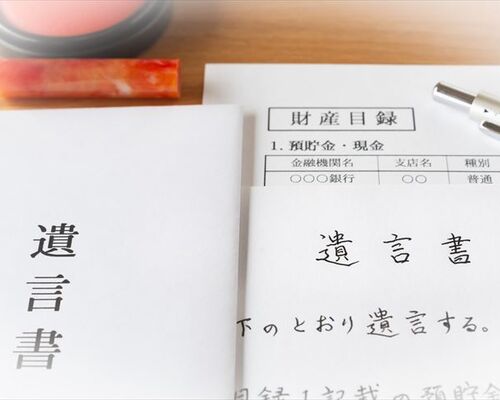 遺言書
財産目録
1. 預貯金・現金
金融機関名 支店名 種別
○○○銀行 ○○ 普通
遺言書
下のとおり遺言する。
目録1記載の預貯金